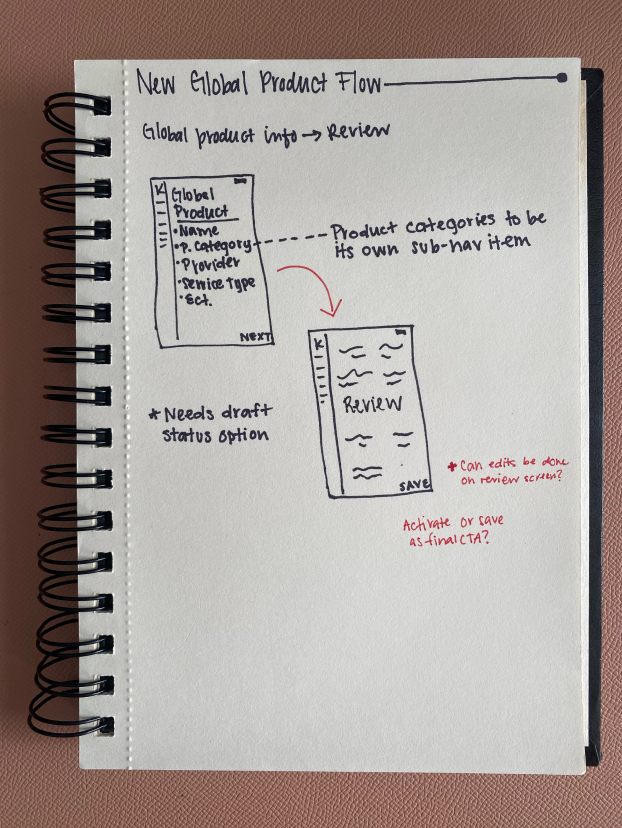 New Global Product Flow
Global product info → Review
K
Global
Product
• Name
• P. Category
• Provider
• Service type
• Ect.
NEXT
Product categories to be
its own sub-nav item
K
Review
SAVE
* Needs draft
status option
* Can edits be done
on review screen?
Activate or save
as final CTA?